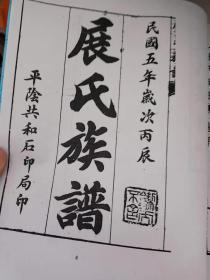 民國五年歲次丙辰
展氏族譜
平陰共和石印局印